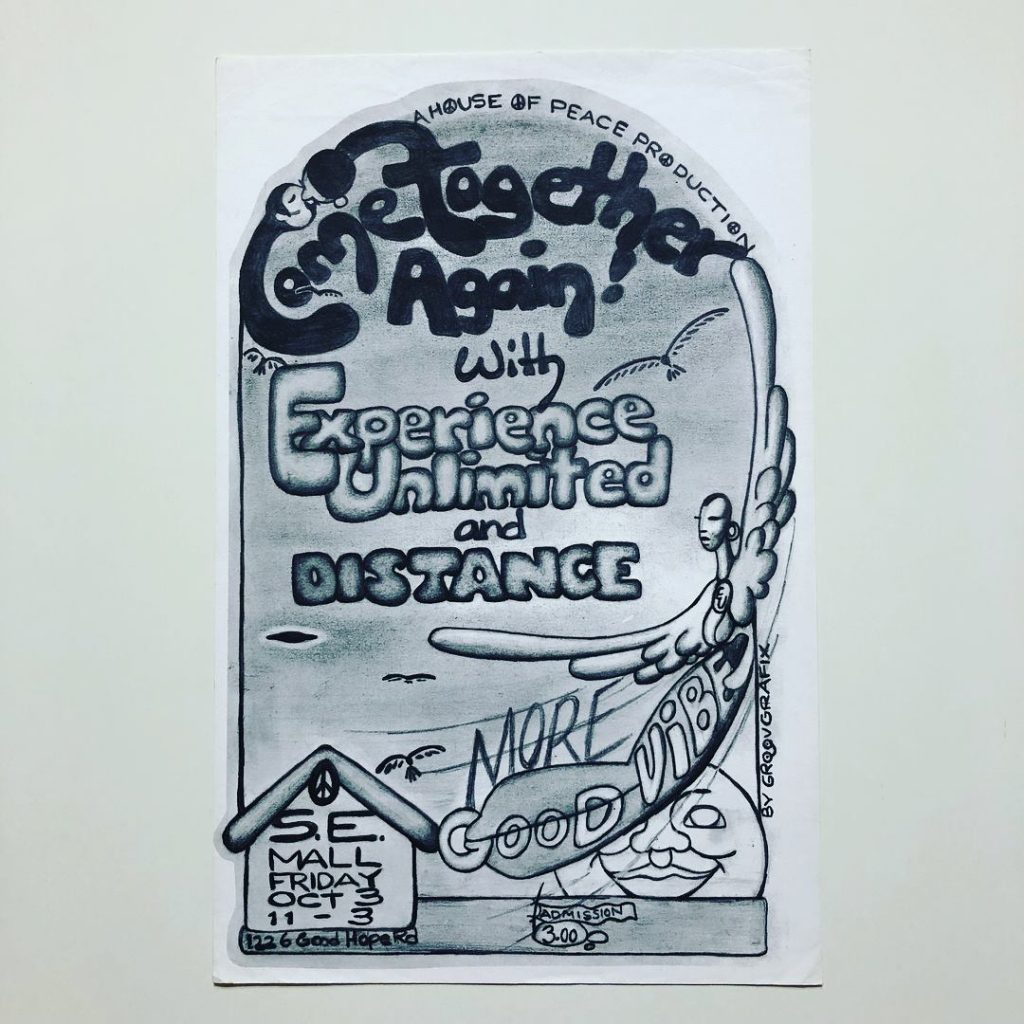 A HOUSE OF PEACE PRODUCTION
Come Together
Again!
With
Experience
Unlimited
and
DISTANCE
MORE
GOOD VIB
BY GROOVGRAFIX
S.E.
MALL
FRIDAY
OCT 3
11 - 3
1226 Good Hope Rd
ADMISSION
3.00